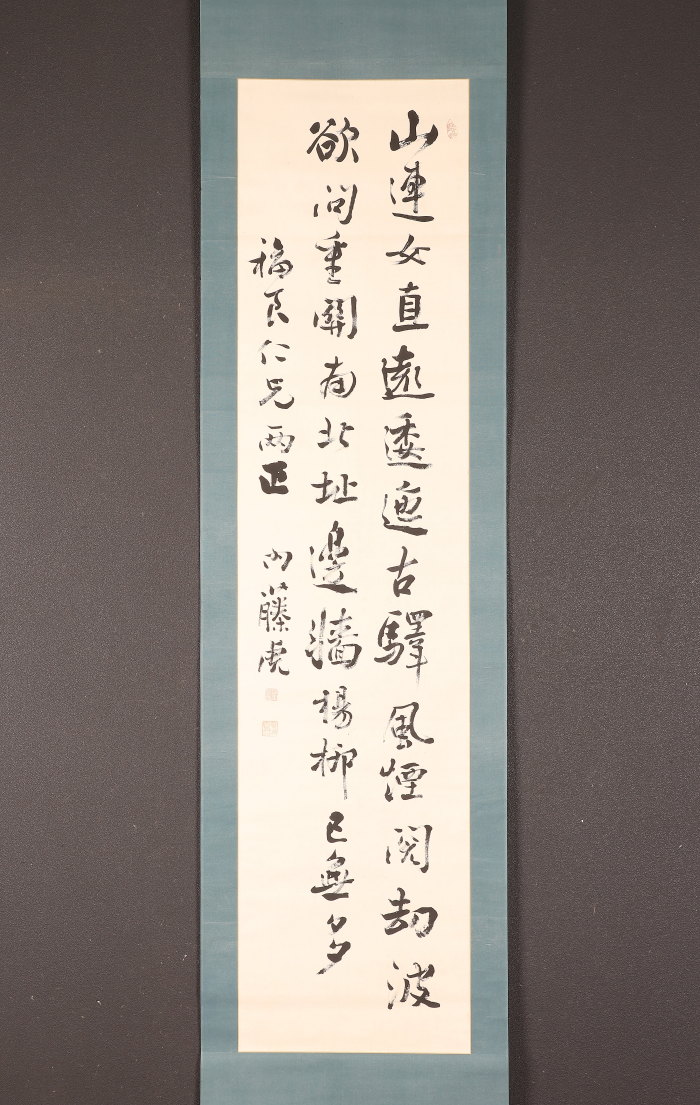 山連女直遠逶迤古驛風煙閱劫波
欲問重關南北址邊牆楊柳已無多
福良仁兄兩正 内藤虎